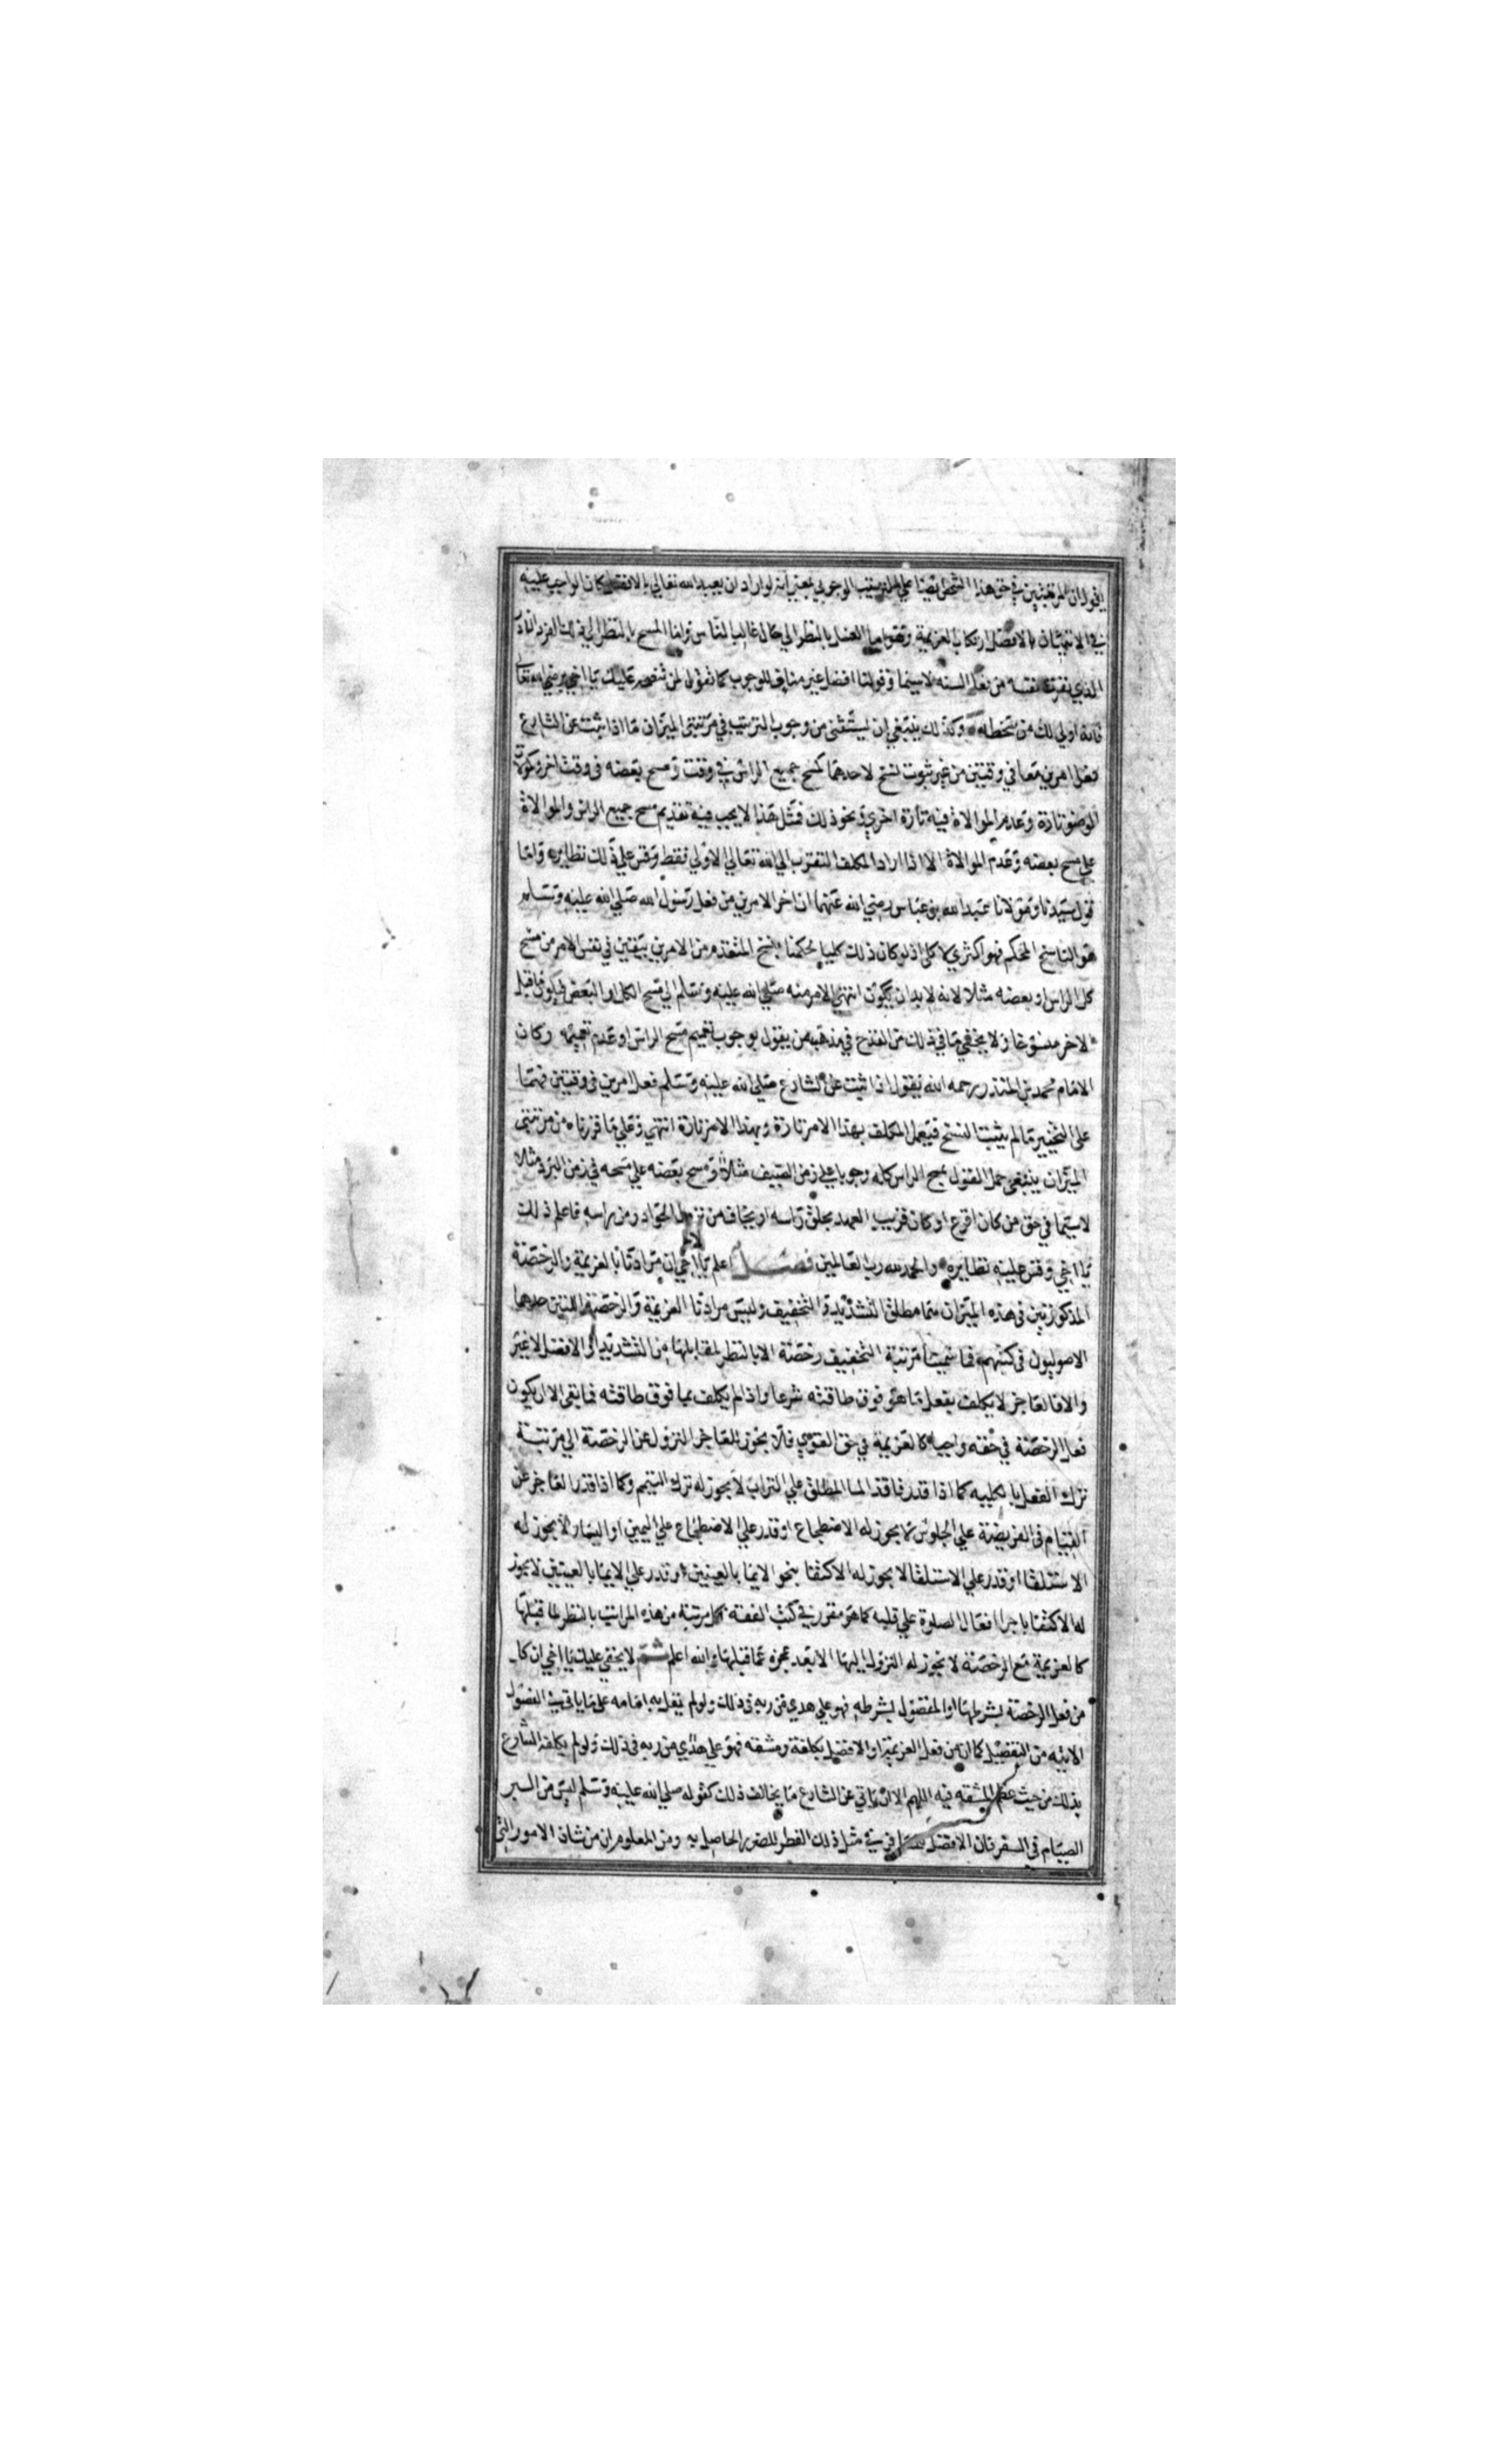 يقول ان المرتبتين في حق هذا الشخص ايضا على الترتيب الوجوبي بمعنى انه لو اراد ان يعبد الله تعالي بالافضل كان الواجب عليه
في الاتيان بالافضل ارتكاب العزيمة وتقولها الغسل بالنظر الي حال غالب الناس وقولنا المسح بالنظر الي ذلك الفرد النادر
الذي نفرت نفسه من فعل السنه لاسيما وقولنا افضل غير مناف للوجوب كما تقول لمن تنصحه عليك يا اخي برضي الله تعالي
فانه اولي لك من سخطه وكذلك ينبغي ان يستثنى من وجوب الترتيب في مرتبتي الميزان ما اذا ثبت عن الشارع
فعل امرين معا في وقتين من غير ثبوت نسخ لاحدهما كمسح جميع الراس في وقت ومسح بعضه في وقت اخر وكموالاة
الوضو تارة وعدم الموالاة فيه تارة اخري ونحو ذلك فمثل هذا لا يجب فيه تقديم مسح جميع الراس والموالاة
علي مسح بعضه وعدم الموالاة الا اذا اراد المكلف التقرب الي الله تعالي الاولي فقط وقس علي ذلك نظايره واما
قول سيدنا ومولانا عبد الله بن عباس رضي الله عنهما ان اخر الامرين من فعل رسول الله صلي الله عليه وسلم
هو الناسخ المحكم فهو اكثري لا كلي اذ لو كان ذلك كليا لحكمنا بنسخ المتقدم من الامرين بيقين في نفس الامر من مسح
كل الراس او بعضه مثلا لانه لا بد ان يكون انتهي الامر منه صلي الله عليه وسلم الي مسح الكل او البعض فيكون ما قبل
الاخر منسوخا ولا يخفي ما في ذلك من القدح في مذهب من يقول بوجوب تعميم مسح الراس او عدم تعميمه وكان
الامام محمد بن المنذر رحمه الله يقول اذا ثبت عن الشارع صلي الله عليه وسلم فعل امرين في وقتين فهما
على التخيير ما لم يثبت النسخ فيعمل المكلف بهذا الامر تارة وبهذا الامر تارة انتهي وعلي ما قررناه من مرتبتي
الميزان ينبغي حمل القول بمسح الراس كله وجوبا علي زمن الصيف مثلا ومسح بعضه علي مسحه في زمن البرد مثلا
لاسيما في حق من كان اقرع او كان قريب العهد بحلق راسه او يخاف من نزول الحوادر من راسه فاعلم ذلك
يا اخي وقس عليه نظايره والحمد لله رب العالمين فصل اعلم يا اخي ان مرادنا بالعزيمة والرخصة
المذكورتين في هذه الميزان هما مطلق التشديد والتخفيف وليس مرادنا العزيمة والرخصة اللتين حدهما
الاصوليون في كتبهم فما سمينا مرتبة التخفيف رخصة الا بالنظر لمقابلها من التشديد او الافضل لا غير
والا فالعاجز لا يكلف بفعل ما هو فوق طاقته شرعا واذا لم يكلف بما فوق طاقته فما بقي الا ان يكون
فعل الرخصة في حقه واجبا كالعزيمة في حق القوي فلا يجوز للعاجز النزول عن الرخصة الي مرتبة
ترك الفعل بالكليه كما اذا قدر فاقد الما المطلق علي التراب لا يجوز له ترك التيمم وكما اذا قدر العاجز عن
القيام في الفريضة علي الجلوس لا يجوز له الاضطجاع او قدر علي الاضطجاع علي اليمين او اليسار لا يجوز له
الاستلقا او قدر علي الاستلقا لا يجوز له الاكتفا بنحو الايما بالعينين او قدر علي الايما بالعينين لا يجوز
له الاكتفا باجرا افعال الصلوة علي قلبه كما هو مقرر في كتب الفقه فكل مرتبة من هذه المراتب بالنظر لما قبلها
كالعزيمة مع الرخصة لا يجوز له النزول اليها الا بعد عجزه عما قبلها والله اعلم ثم لا يخفي عليك يا اخي ان كل
من فعل الرخصة بشرطها او المفضول بشرطه فهو علي هدي من ربه في ذلك ولو لم يقل به امامه على ما ياتي في الفصول
الاتيه من التفصيل كما ان من فعل العزيمة او الافضل بكلفة ومشقه فهو علي هدي من ربه في ذلك ولو لم يكلفه الشارع
بذلك من حيث عظم المشقه فيه اللهم الا ان ياتي عن الشارع ما يخالف ذلك كقوله صلي الله عليه وسلم ليس من البر
الصيام في السفر فان الافضل في مثل ذلك الفطر للضرر الحاصل به ومن المعلوم ان من شان الامور التي